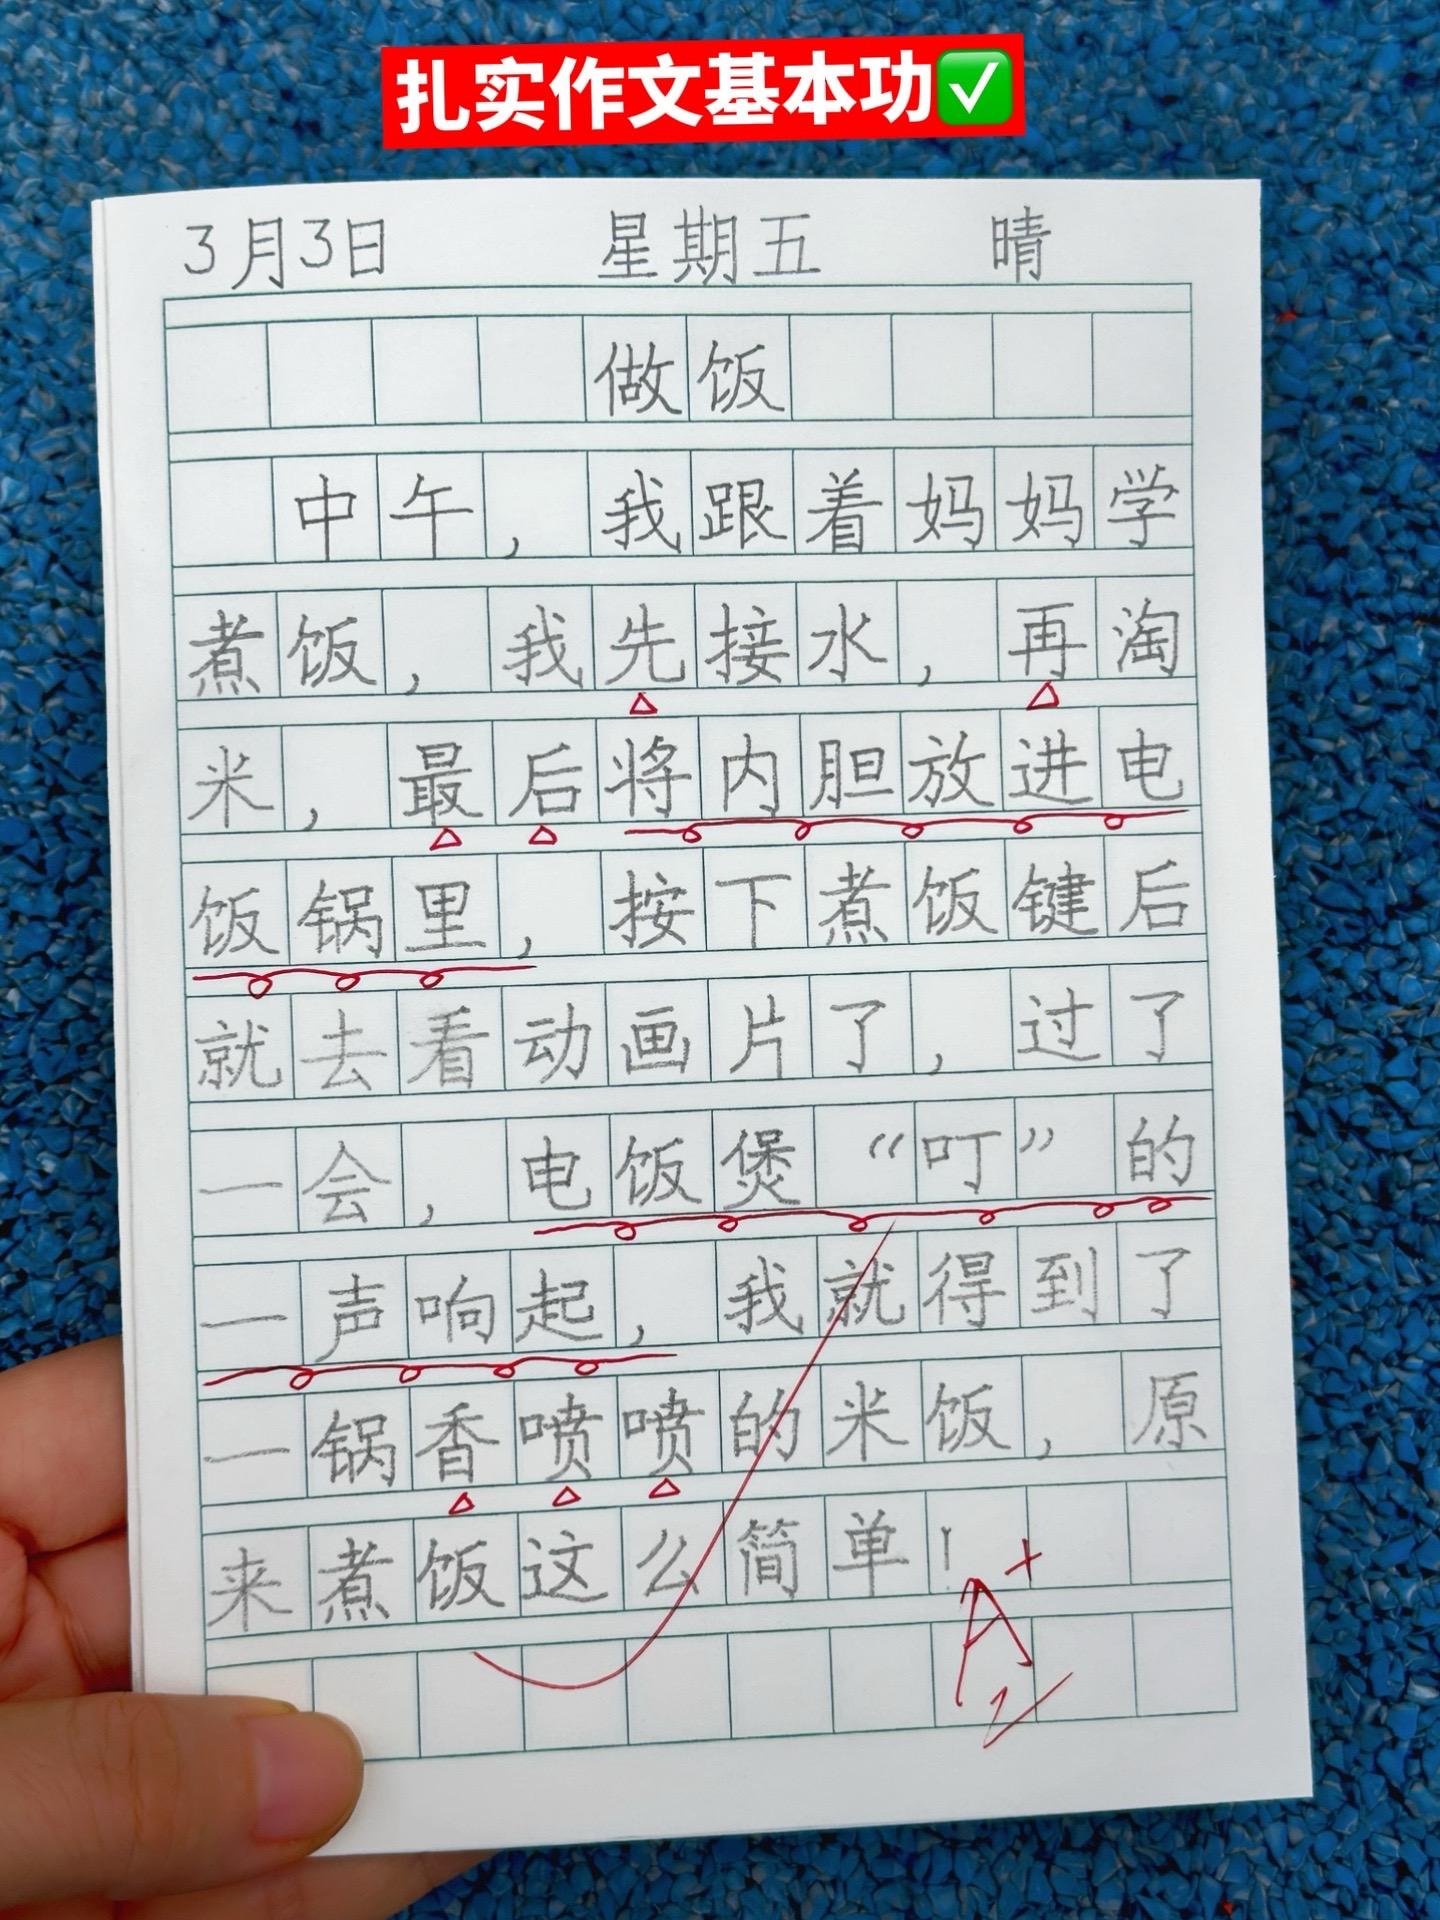 扎实作文基本功✅
3月3日 星期五 晴
做饭
中午，我跟着妈妈学
煮饭，我先接水，再淘
米，最后将内胆放进电
饭锅里，按下煮饭键后
就去看动画片了，过了
一会，电饭煲“叮”的
一声响起，我就得到了
一锅香喷喷的米饭，原
来煮饭这么简单！
A+